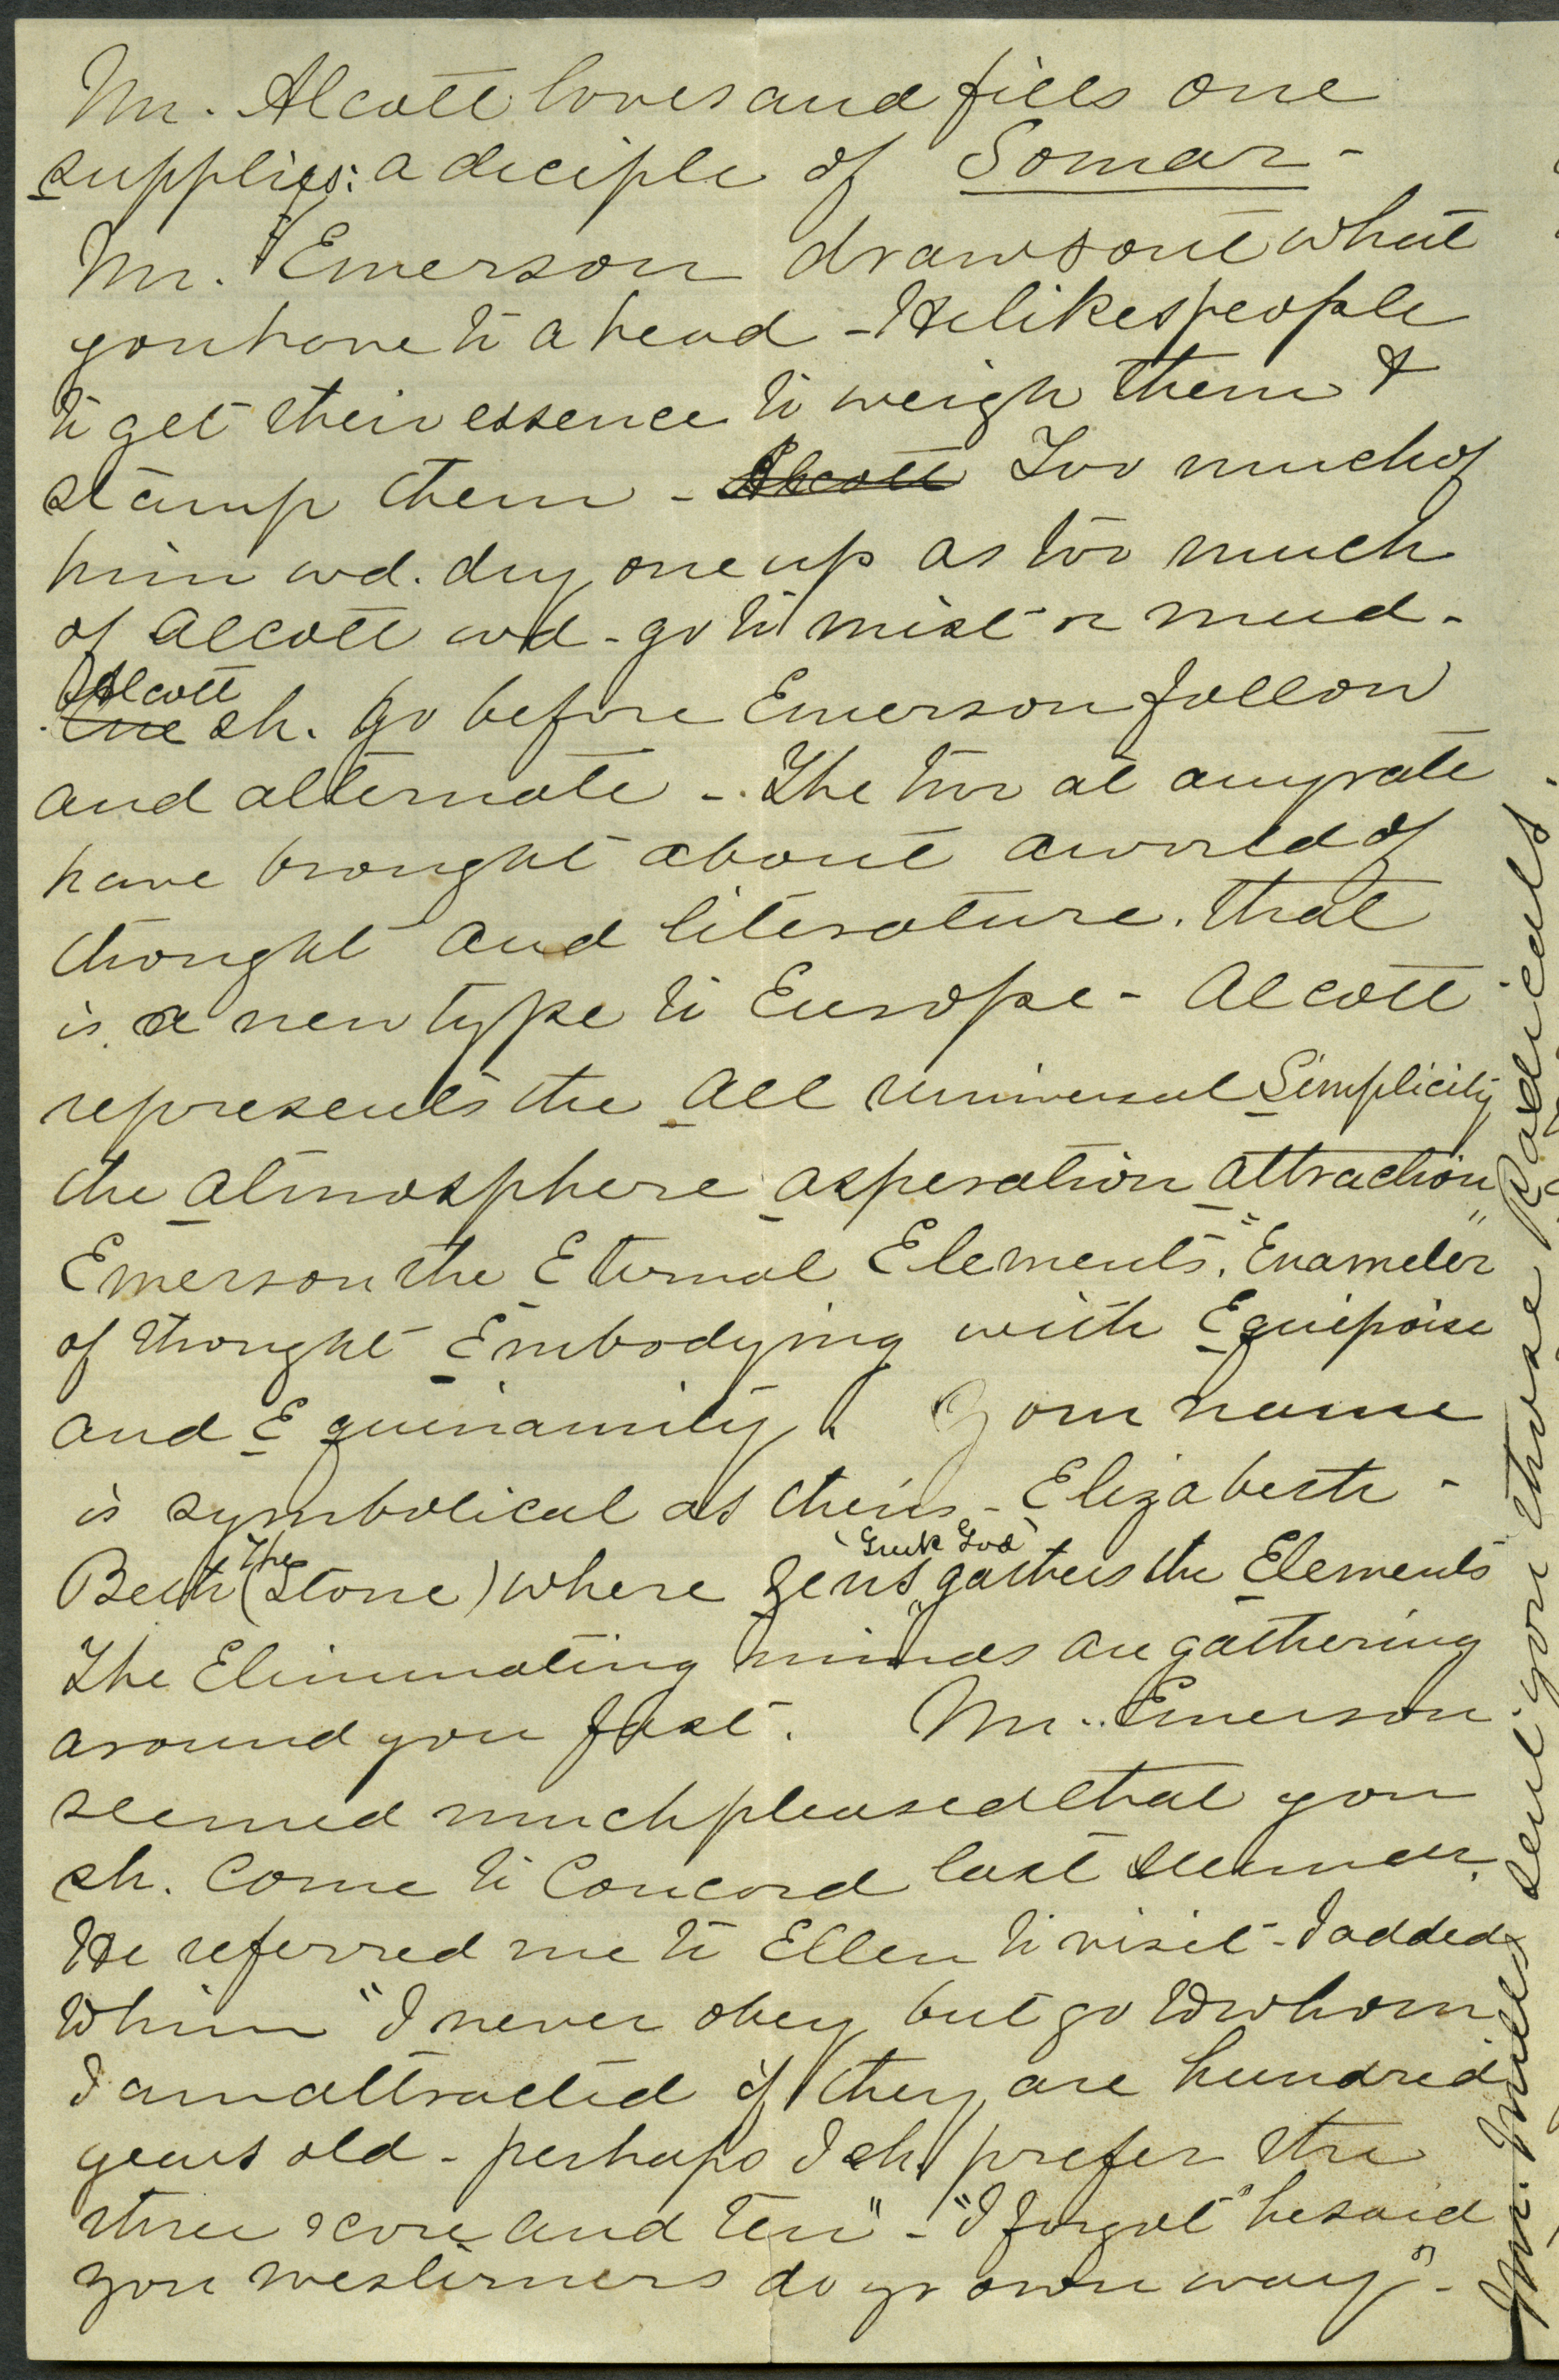 Mr. Alcott loves and fills one
supplies: a deciple of Somar -
Mr. Emerson draws out what
you have to a head - He likes people
to get their essence to weigh them &
stamp them - Alcott Too much of
him wd. dry one up as too much
of Alcott wd - go to mist or mud -
Alcott
One sh. go before Emerson follow
and alternate -. The two at any rate
have brought about a world of
thought and literature. that
is a new type to Europe - Alcott
represents the All Universal Simplicity
the atmosphere asperation attraction
Emerson the Eternal Elements. "Enameler"
of thought Embodying with Equipoise
and Equinamity. Your name
is symbolical as theirs - Elizabeth -
Beth (the Stone) where Zeus "Greek God" gathers the Elements
The Eliminating minds are gathering
around you fast. Mr. Emerson
seemed much pleased that you
sh. come to Concord last summer.
He referred me to Ellen to visit - I added
"I never obey but go to whom
I am attracted if they are hundred
years old - perhaps I sh. prefer the
three score and ten" - "I forgot" he said
you westerners do yr own way" -
Mr. Mills sent you those Radicals.